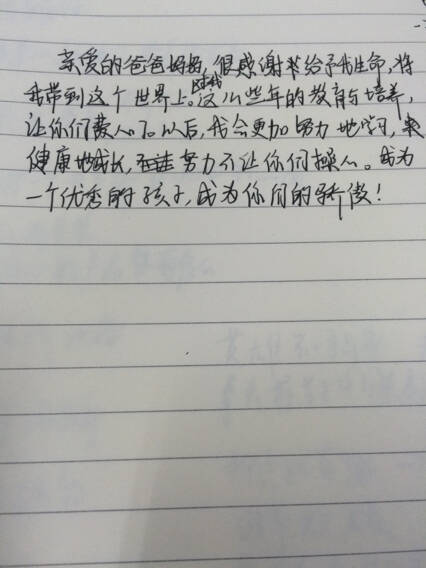 亲爱的爸爸妈妈,很感谢你给予我生命,将
我带到这个世界上。这么些年对我的教育与培养,
让你们费心了。以后,我会更加努力地学习,
健康地成长,努力不让你们操心。成为
一个优秀的孩子,成为你们的骄傲!